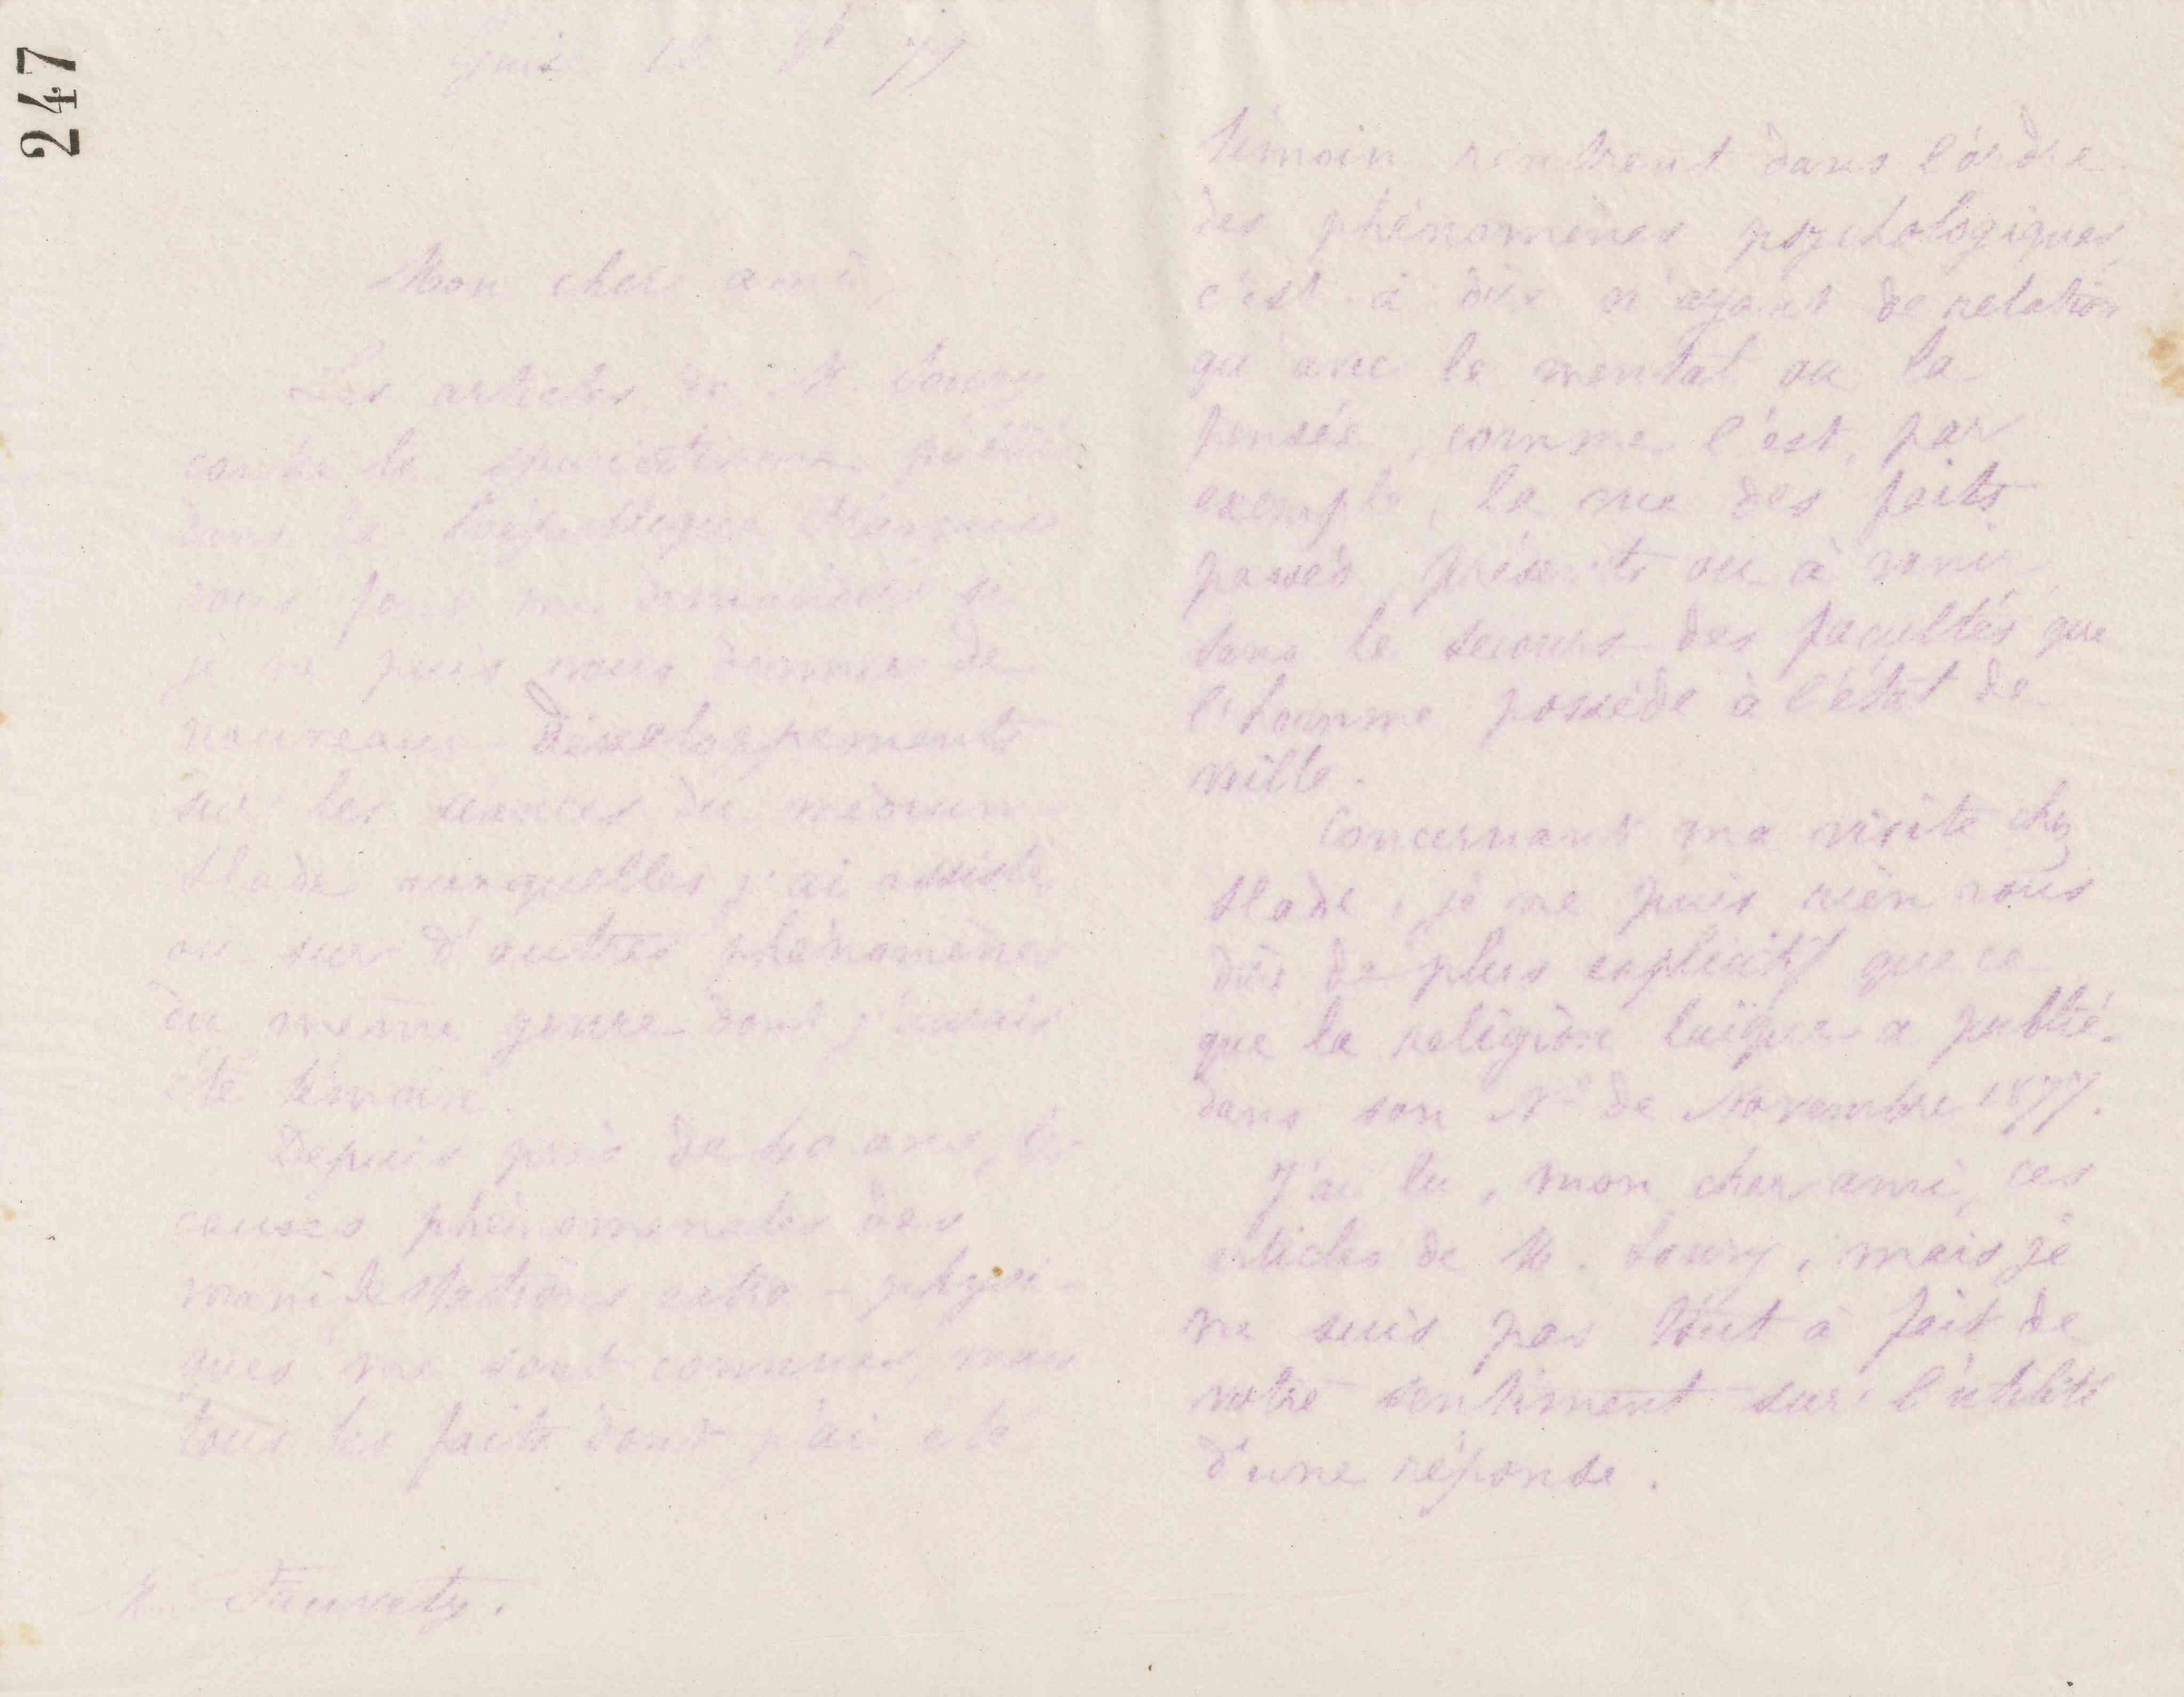 247
18 9b 77
Mon cher ami,
Les articles de M. Soury
contre le publiés
dans la République Française
vous font me demander si
je ne puis vous donner de
nouveaux développements
sur les séances du médium
Slade auxquelles j'ai assisté
ou sur d'autres phénomènes
du même genre dont j'aurais
été témoin.
Depuis près de 40 ans, les
causes phénoménales des
manifestations extra-physi-
ques me sont connues, mais
tous les faits dont j'ai été
M. Fauvety.
témoin rentrent dans l'ordre
des phénomènes psychologiques,
c'est à dire n'ayant de relation
qu'avec le mental ou la
pensée, comme l'est, par
exemple, la vue des faits
passés, présents ou à venir,
sans le secours des facultés que
l'homme possède à l'état de
veille.
Concernant ma visite chez
Slade, je ne puis rien vous
dire de plus explicatif que ce
que la religion laïque a publié
dans son No de Novembre 1877.
J'ai lu, mon cher ami, ces
articles de M. Soury, mais je
ne suis pas tout à fait de
votre sentiment sur l'utilité
d'une réponse.